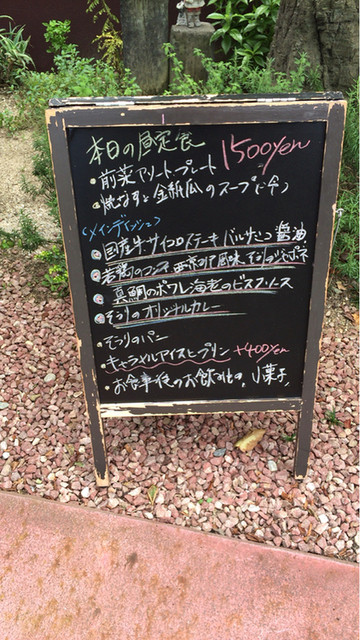 本日の昼定食 1500yen
・前菜アソートプレート
・焼なすと金糸瓜のスープ(冷)
(メインディッシュ)
国産牛サイコロステーキ バルサミコ醤油
若鶏のコンフィ
真鯛のポワレ海老のビスクソース
そつりのオリジナルカレー
・そつりのパン
・キャラメルアイスとプリン +400yen
・お食事後のお飲み物、小菓子